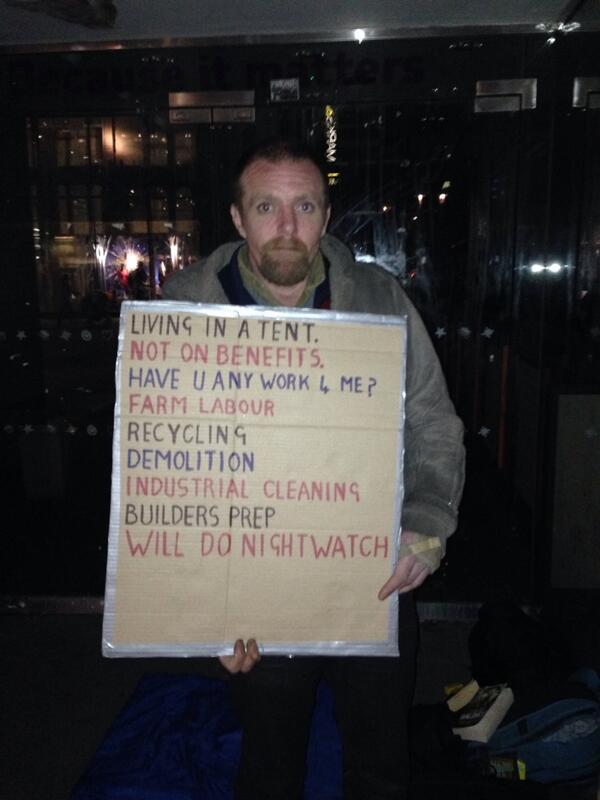 Because it matters
LIVING IN A TENT.
NOT ON BENEFITS.
HAVE U ANY WORK 4 ME?
FARM LABOUR
RECYCLING
DEMOLITION
INDUSTRIAL CLEANING
BUILDERS PREP
WILL DO NIGHTWATCH